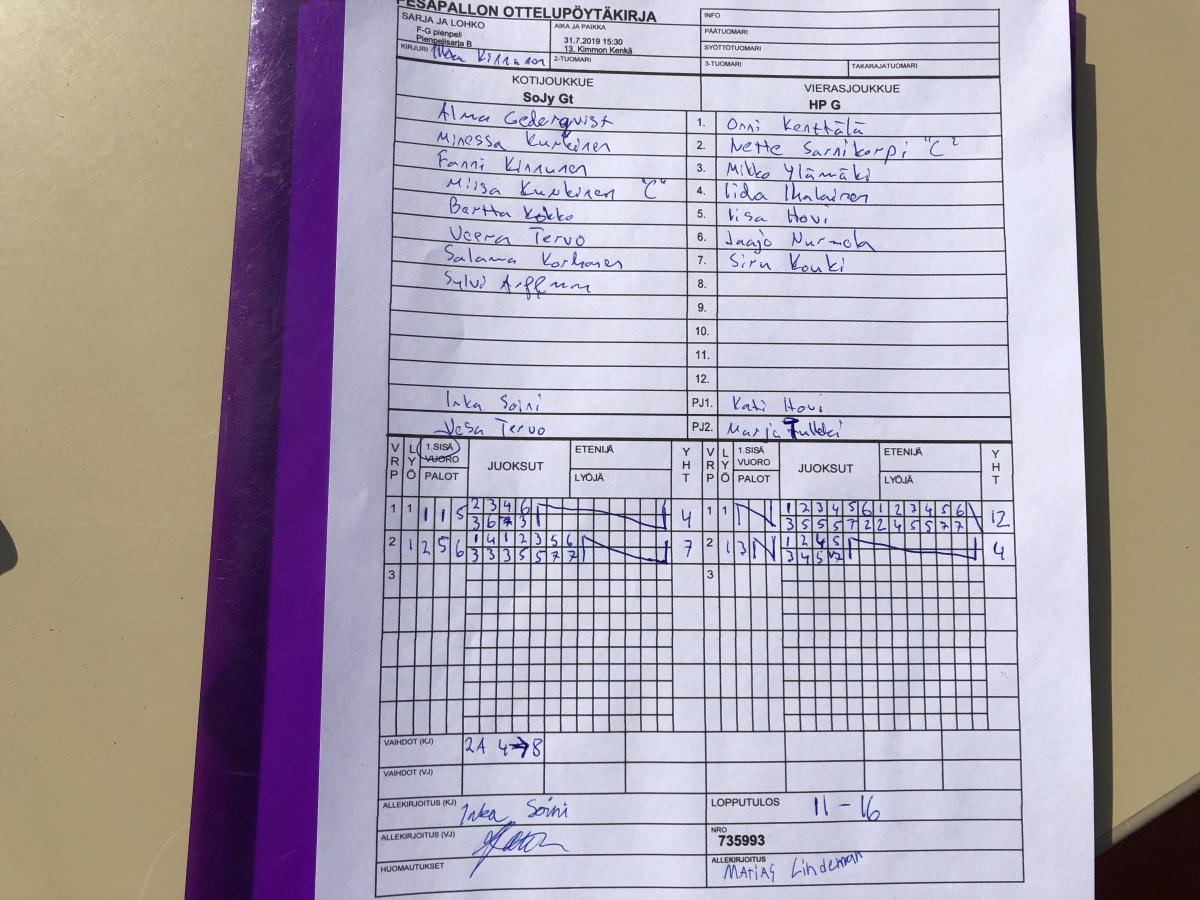 PESAPALLON OTTELUPÖYTÄKIRJA
SARJA JA LOHKO
F-G pienpeli
Pienpelisarja B
AIKA JA PAIKKA
31.7.2019 15:30
13. Kimmon Kenkä
INFO
PÄÄTUOMARI
SYÖTTÖTUOMARI
KIRJURI Kinnunen
2-TUOMARI
3-TUOMARI
TAKARAJATUOMARI
KOTIJOUKKUE
SoJy Gt
VIERASJOUKKUE
HP G
Alma Cederqvist 1. Onni Kenttälä
Minessa Kurkinen 2. Nette Sarnikorpi "C"
Fanni Kinnunen 3. Mikko Ylämäki
Miisa Kurkinen "C" 4. Iida Ihalainen
Bertta Kokko 5. Iisa Hovi
Veera Tervo 6. Jaajo Nurmela
Salama Korhonen 7. Siru Kouki
Sylvi 8.
9.
10.
11.
12.
Inka Soini PJ1. Kati Hovi
Vesa Tervo PJ2. Marja
VRP LYÖ 1.SISÄ VUORO PALOT JUOKSUT ETENIJÄ LYÖJÄ YHT VRP LYÖ 1.SISÄ VUORO PALOT JUOKSUT ETENIJÄ LYÖJÄ YHT
1 1 1 1 5 2 3 4 6 4 1 1 1 2 3 4 5 6 1 2 3 4 5 6 12
3 6 7 3 3 5 5 5 7 2 2 4 5 5 7 7
2 1 2 5 6 1 4 1 2 3 5 6 7 2 1 3 1 2 4 5 4
3 3 3 5 5 7 7 3 4 5 7
3 3
VAIHDOT (KJ) 2A 4→8
VAIHDOT (VJ)
ALLEKIRJOITUS (KJ) Inka Soini
LOPPUTULOS 11-16
ALLEKIRJOITUS (VJ)
NRO
735993
HUOMAUTUKSET
ALLEKIRJOITUS
Matias Lindeman